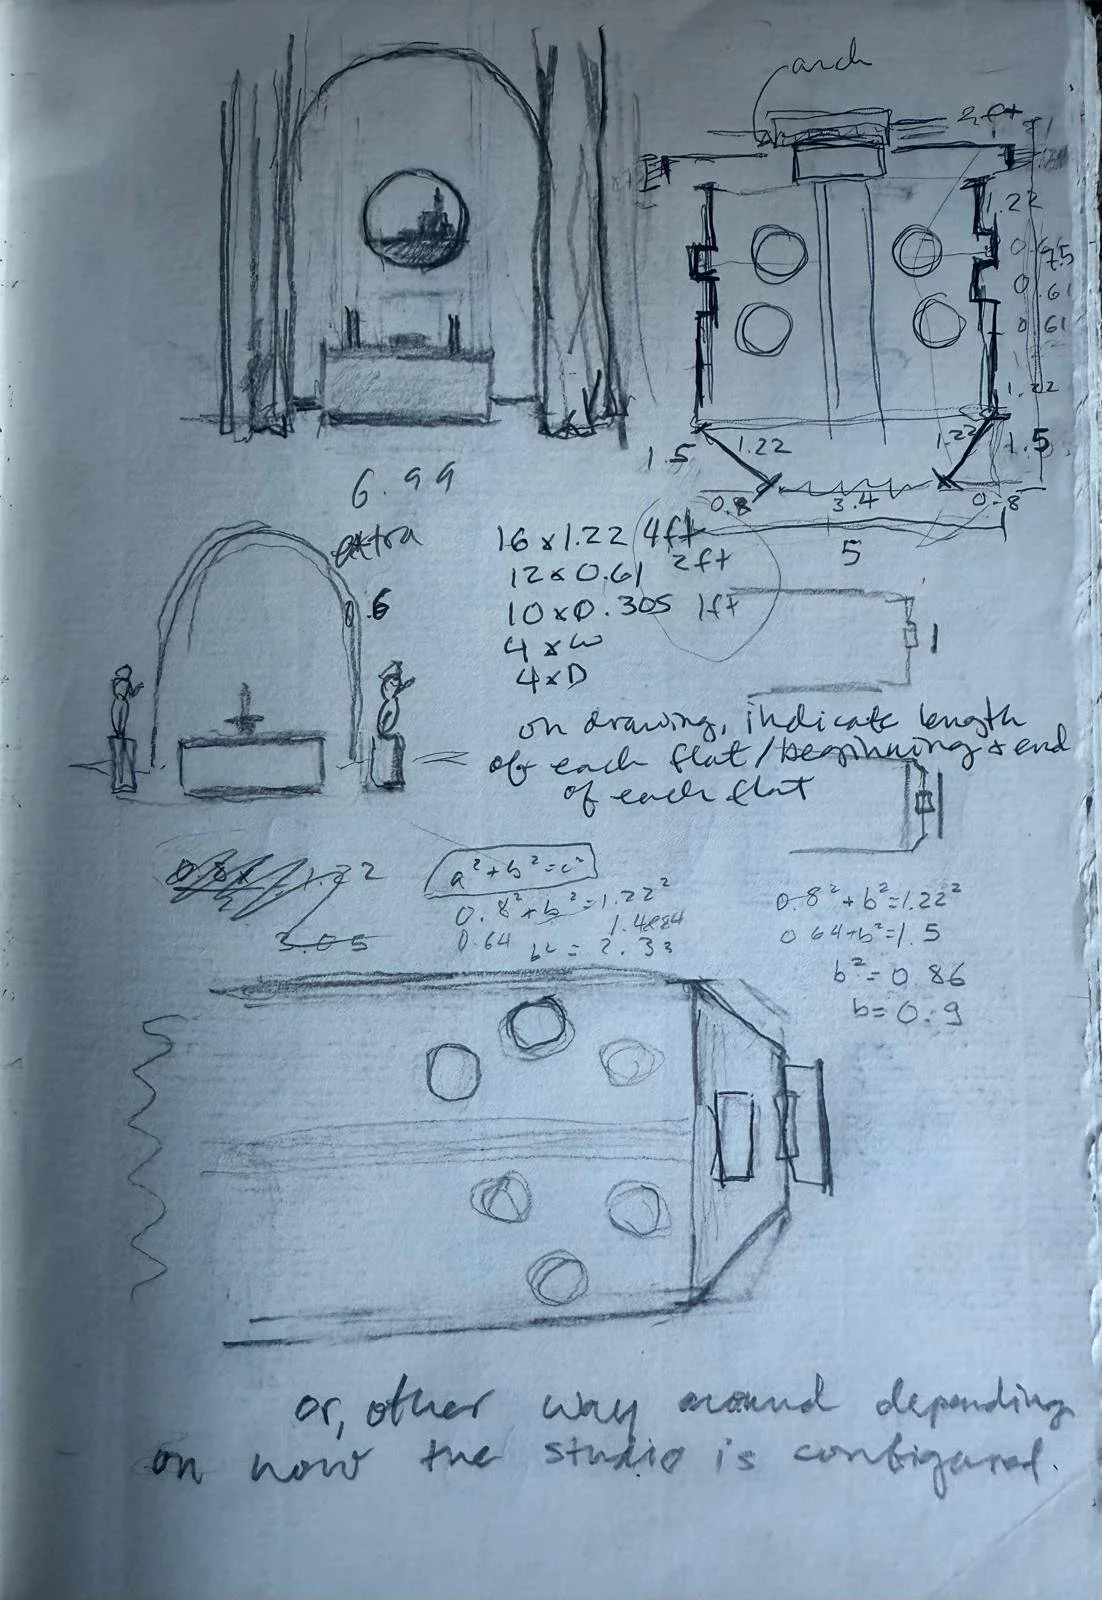 arch
2ft
1.22
0.61
0.61
1.22
1.5
1.22
1.22
1.5
0.8
3.4
0.8
5
6.99
extra
0.6
16 x 1.22 4ft
12 x 0.61 2ft
10 x 0.305 1ft
4 x W
4 x D
on drawing, indicate length
of each flat/beginning & end
of each flat
1.22
3.05
a² + b² = c²
0.8² + b² = 1.22²
0.64 1.4884
b² = 2.33
0.8² + b² = 1.22²
0.64 + b² = 1.5
b² = 0.86
b = 0.9
or, other way around depending
on how the studio is configured.